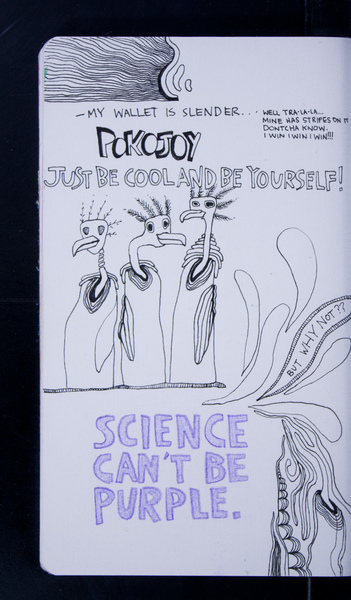 -MY WALLET IS SLENDER...
WELL TRA-LA-LA...
MINE HAS STRIPES ON IT
DONTCHA KNOW.
I WIN I WIN I WIN!!!
POKOJOY
JUST BE COOL AND BE YOURSELF!
BUT WHY NOT??
SCIENCE
CAN'T BE
PURPLE.